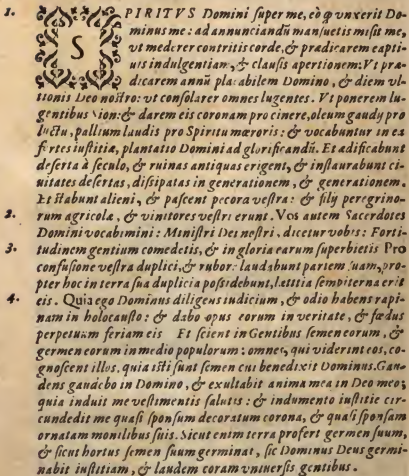 1. SPIRITVS Domini ſuper me, eò q̃ vnxerit Do-
minus me: ad annunciandũ manſuetis miſit me,
vt mederer contritis corde, & prædicarem capti-
uis indulgentiam, & clauſis apertionem: Vt præ-
dicarem annũ placabilem Domino, & diem vl-
tionis Deo noſtro: vt conſolarer omnes lugentes. Vt ponerem lu-
gentibus Sion: & darem eis coronam pro cinere, oleum gaudy pro
luctu, pallium laudis pro Spiritu mœroris: & vocabuntur in ea
fortes iuſtitia, plantatio Domini ad glorificandũ. Et ædificabunt
deſerta à ſeculo, & ruinas antiquas erigent, & inſtaurabunt ci-
uitates deſertas, diſsipatas in generationem, & generationem.
Et ſtabunt alieni, & paſcent pecora veſtra: & filij peregrino-
2. rum agricolæ, & vinitores veſtri erunt. Vos autem Sacerdotes
Domini vocabimini: Miniſtri Dei noſtri, dicetur vobis: Forti-
3. tudinem gentium comedetis, & in gloria earum ſuperbietis Pro
confuſione veſtra duplici, & rubor: laudabunt partem ſuam, pro-
pter hoc in terra ſua duplicia poſsidebunt, lætitia ſempiterna erit
4. eis. Quia ego Dominus diligens iudicium, & odio habens rapi-
nam in holocauſto: & dabo opus eorum in veritate, & fœdus
perpetuum feriam eis Et ſcient in Gentibus ſemen eorum, &
germen eorum in medio populorum: omnes, qui viderint eos, co-
gnoſcent illos, quia iſti ſunt ſemen cui benedixit Dominus. Gau-
dens gaudebo in Domino, & exultabit anima mea in Deo meo;
quia induit me veſtimentis ſalutis: & indumento iuſtitiæ cir-
cundedit me quaſi ſponſum decoratum corona, & quaſi ſponſam
ornatam monilibus ſuis. Sicut enim terra profert germen ſuum,
& ſicut hortus ſemen ſuum germinat, ſic Dominus Deus germi-
nabit iuſtitiam, & laudem coram vniuerſis gentibus.